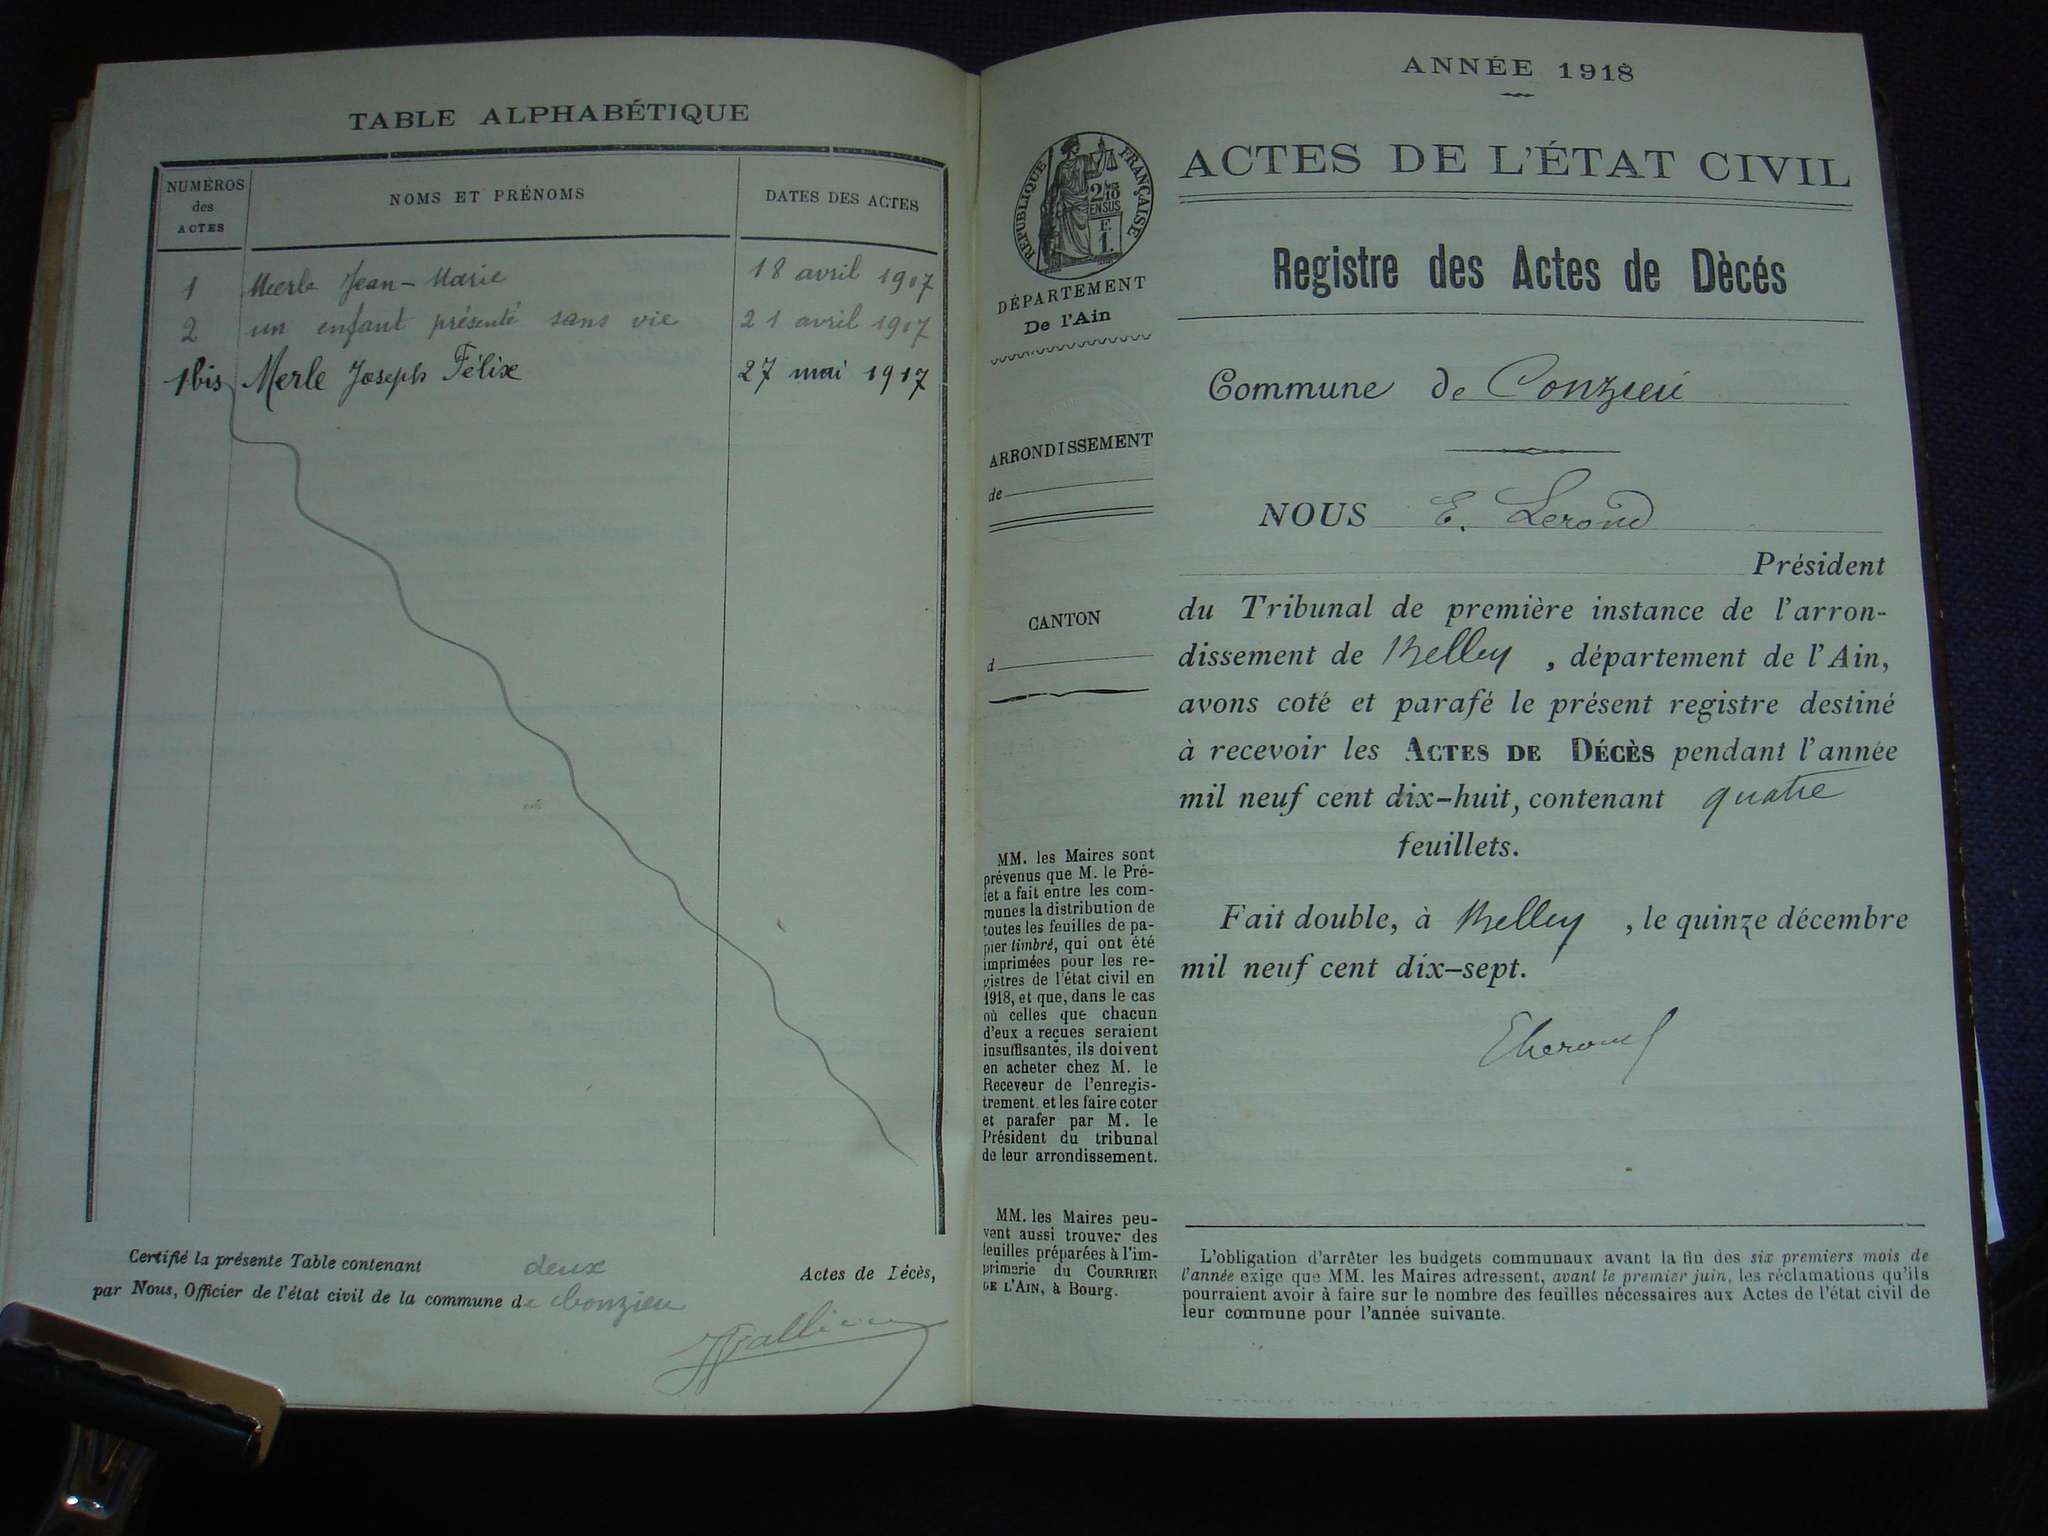 TABLE ALPHABÉTIQUE
NUMÉROS des ACTES
NOMS ET PRÉNOMS
DATES DES ACTES
1 Merle Jean-Marie 18 avril 1917
2 un enfant présenté sans vie 21 avril 1917
1bis Merle Joseph Félix 27 mai 1917
Certifié la présente Table contenant deux Actes de Décès,
par Nous, Officier de l'état civil de la commune de Conzieu
ANNÉE 1918
RÉPUBLIQUE FRANÇAISE
2/10 EN SUS
F.
1.
ACTES DE L'ÉTAT CIVIL
DÉPARTEMENT
De l'Ain
Registre des Actes de Dècés
Commune de Conzieu
ARRONDISSEMENT
de
NOUS E. Lerond
Président
CANTON
d
du Tribunal de première instance de l'arron-
dissement de Belley, département de l'Ain,
avons coté et parafé le présent registre destiné
à recevoir les ACTES DE DÉCÈS pendant l'année
mil neuf cent dix-huit, contenant quatre
feuillets.
Fait double, à Belley, le quinze décembre
mil neuf cent dix-sept.
MM. les Maires sont
prévenus que M. le Pré-
fet a fait entre les com-
munes la distribution de
toutes les feuilles de pa-
pier timbré, qui ont été
imprimées pour les re-
gistres de l'état civil en
1918, et que, dans le cas
où celles que chacun
d'eux a reçues seraient
insuffisantes, ils doivent
en acheter chez M. le
Receveur de l'enregis-
trement et les faire coter
et parafer par M. le
Président du tribunal
de leur arrondissement.
MM. les Maires peu-
vent aussi trouver des
feuilles préparées à l'im-
primerie du COURRIER
DE L'AIN, à Bourg.
L'obligation d'arrêter les budgets communaux avant la fin des six premiers mois de
l'année exige que MM. les Maires adressent, avant le premier juin, les réclamations qu'ils
pourraient avoir à faire sur le nombre des feuilles nécessaires aux Actes de l'état civil de
leur commune pour l'année suivante.